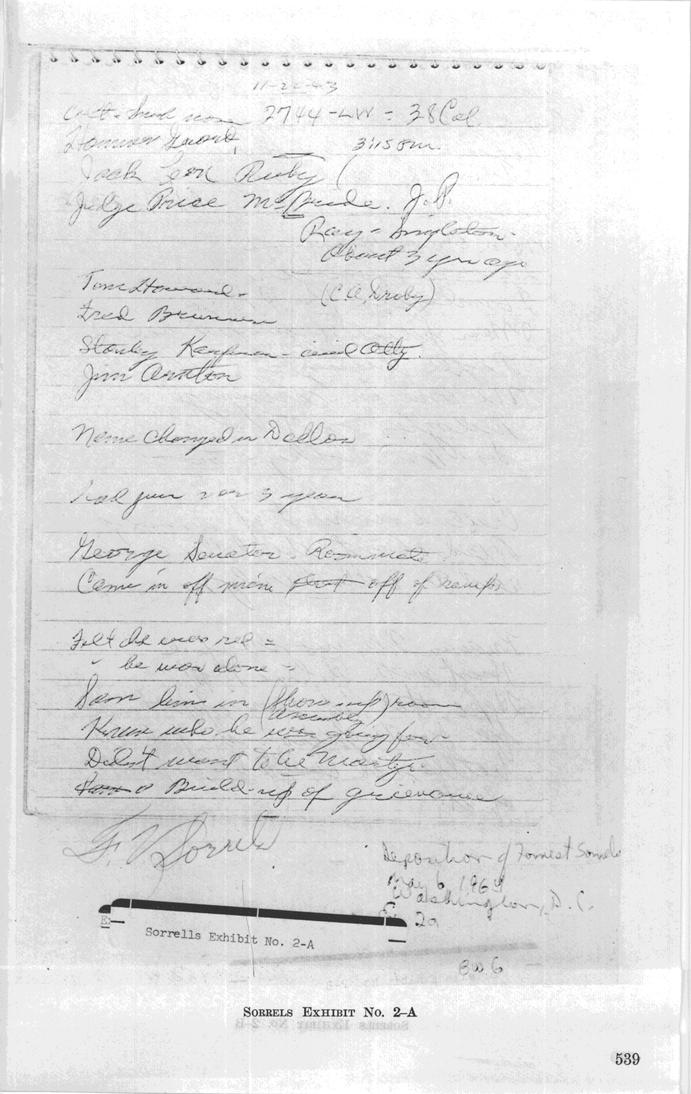 11-22-63
Colt 2744-LW = 38 Cal.
3:15 P.M.
Jack Leon Ruby
Judge Price McBride. J.P.
Ray Singleton-
About 3 yrs ago
Tom Howard-
(C.A. Droby)
Fred Bruner
Stanley Kaufman - civil Atty.
Jim Arnton
Name changed in Dallas
had gun 2 or 3 years
George Senator. Roommate
Came in off main off of ramp
Felt he was red =
" he was alone =
Saw him in (show up) room
(assembly)
Knew who he was going for
Didn't want to be Martyr
Build-up of grievance
F V Sorrels
Deposition of Forrest Sorrels
May 6, 1964
Washington, D.C.
2a
Sorrells Exhibit No. 2-A
SORRELS EXHIBIT No. 2–A
539